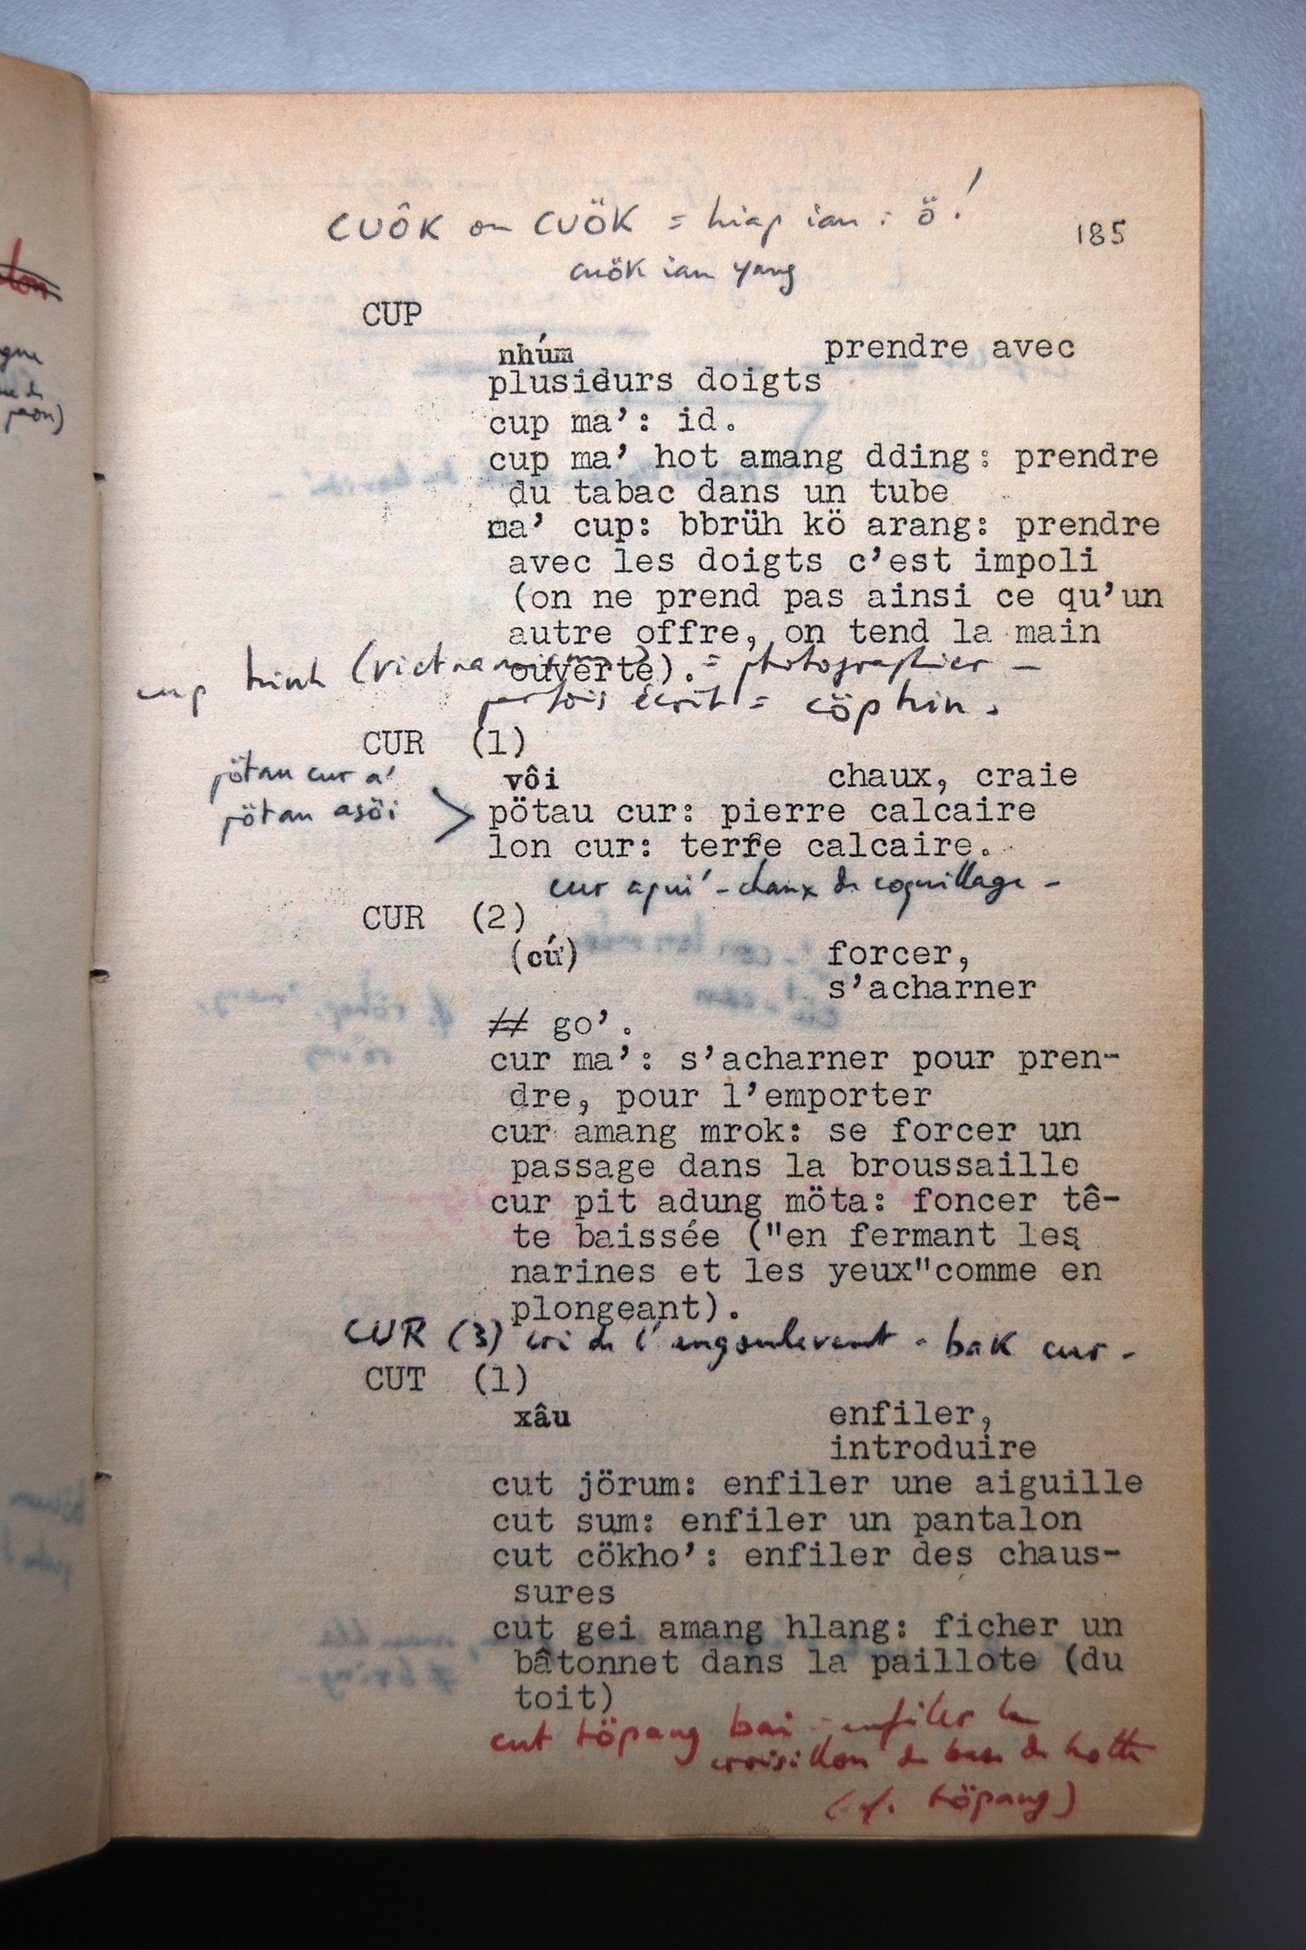 CUÔK ou CUÖK = hiap ian : ö !
185
cuök ian yang
CUP
nhúm prendre avec
plusieurs doigts
cup ma’: id.
cup ma’ hot amang dding: prendre
du tabac dans un tube
ma’ cup: bbrüh kö arang: prendre
avec les doigts c’est impoli
(on ne prend pas ainsi ce qu’un
autre offre, on tend la main
ouverte).
cup hinh = photographier -
parfois écrit = cöphin.
CUR (1)
pötau cur a'
vôi chaux, craie
pötau asöi
pötau cur: pierre calcaire
lon cur: terre calcaire.
cur apui' - chaux de coquillage -
CUR (2)
(cứ) forcer,
s’acharner
## go’.
cur ma’: s’acharner pour pren-
dre, pour l’emporter
cur amang mrok: se forcer un
passage dans la broussaille
cur pit adung möta: foncer tê-
te baissée ("en fermant les
narines et les yeux"comme en
plongeant).
CUR (3) cri de l'engoulevent - bak cur -
CUT (1)
xâu enfiler,
introduire
cut jörum: enfiler une aiguille
cut sum: enfiler un pantalon
cut cökho’: enfiler des chaus-
sures
cut gei amang hlang: ficher un
bâtonnet dans la paillote (du
toit)
cut töpang bai - enfiler le
croisillon de base de hotte
(cf. töpang)